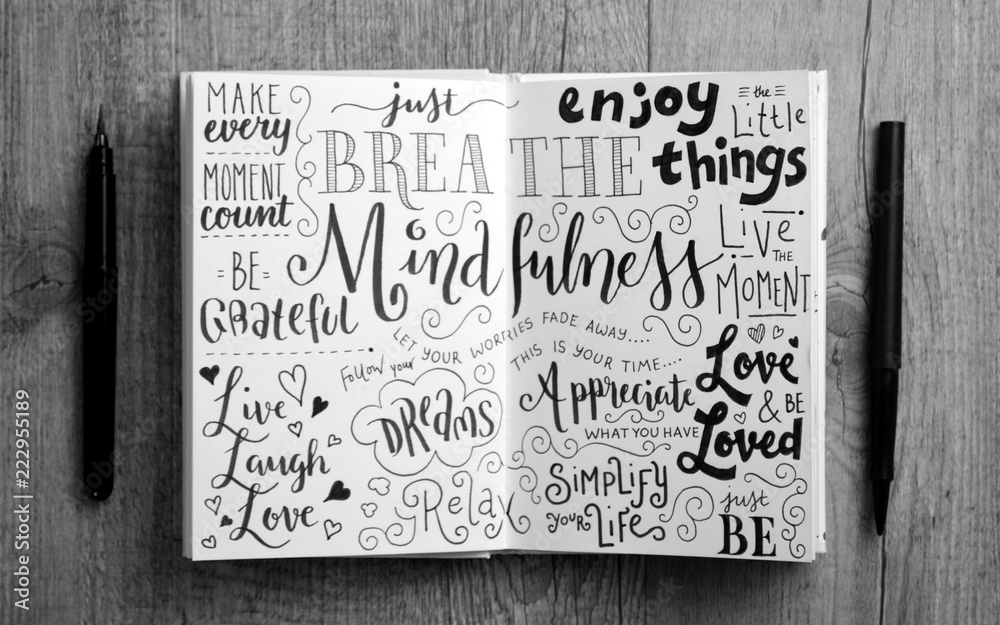 MAKE
every
MOMENT
count
= BE =
GRateful
Live
Laugh
Love
just
BREATHE
Mindfulness
LET YOUR WORRIES FADE AWAY....
THIS IS YOUR TIME....
Follow your
DREAMS
Relax
Appreciate
WHAT YOU HAVE
SiMPLiFY
YOUR LiFE
enjoy
the
Little
things
LiVE
THE
MOMENT
Love
& BE
Loved
just
BE
Adobe Stock | #222955189